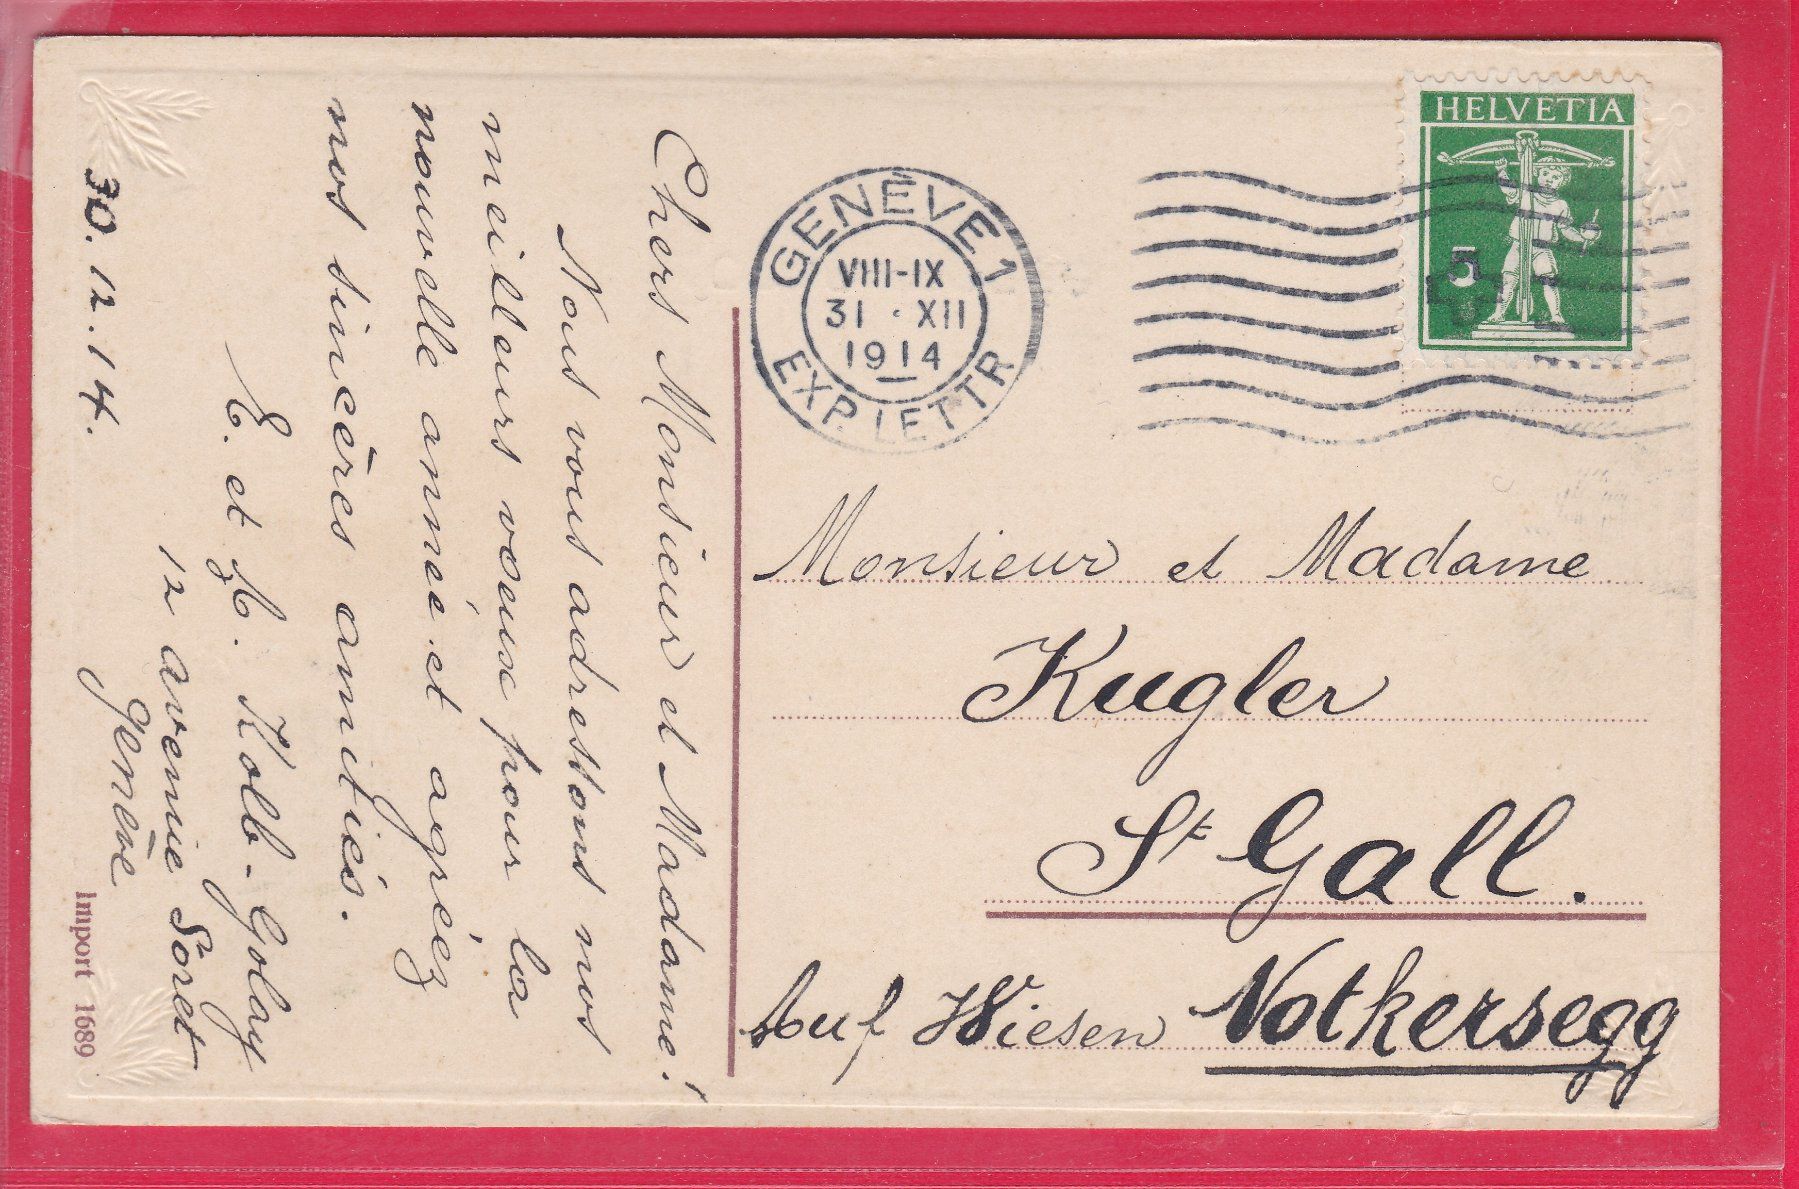 Chers Monsieur et Madame!
Nous vous adressons nos
meilleurs voeux pour la
nouvelle année et agréez
nos sincères amitiés.
E. et H. Kolb-Golay
12 avenue Soret
Genève
30.12.14.
Import 1689
GENÈVE 1
VIII-IX
31 · XII
1914
EXP. LETTR
HELVETIA
5
Monsieur et Madame
Kugler
St Gall.
Auf Wiesen Notkersegg